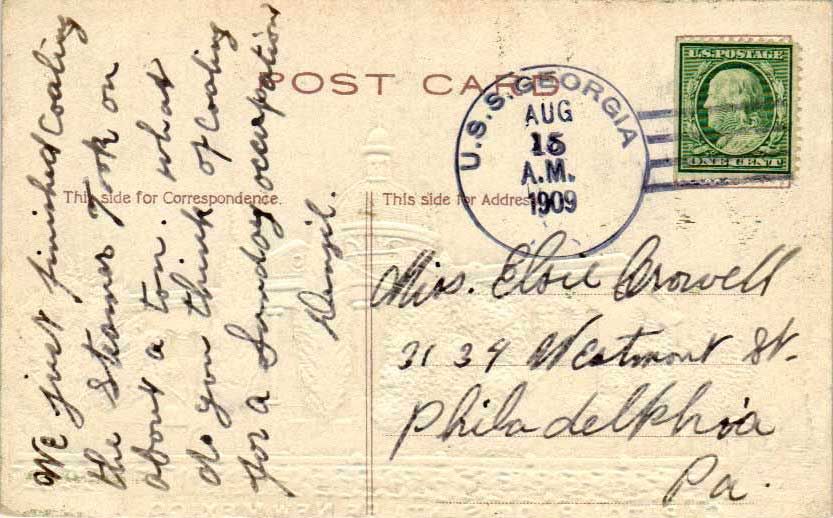 POST CARD
U.S.S. GEORGIA
AUG
15
A.M.
1909
U.S. POSTAGE
ONE CENT
This side for Correspondence.
This side for Address.
We just finished coaling
the steamer took on
about a ton. what
do you think of coaling
for a Sunday occupation
Miss. Elsie Crowell
3134 Westmont St.
Philadelphia
Pa.